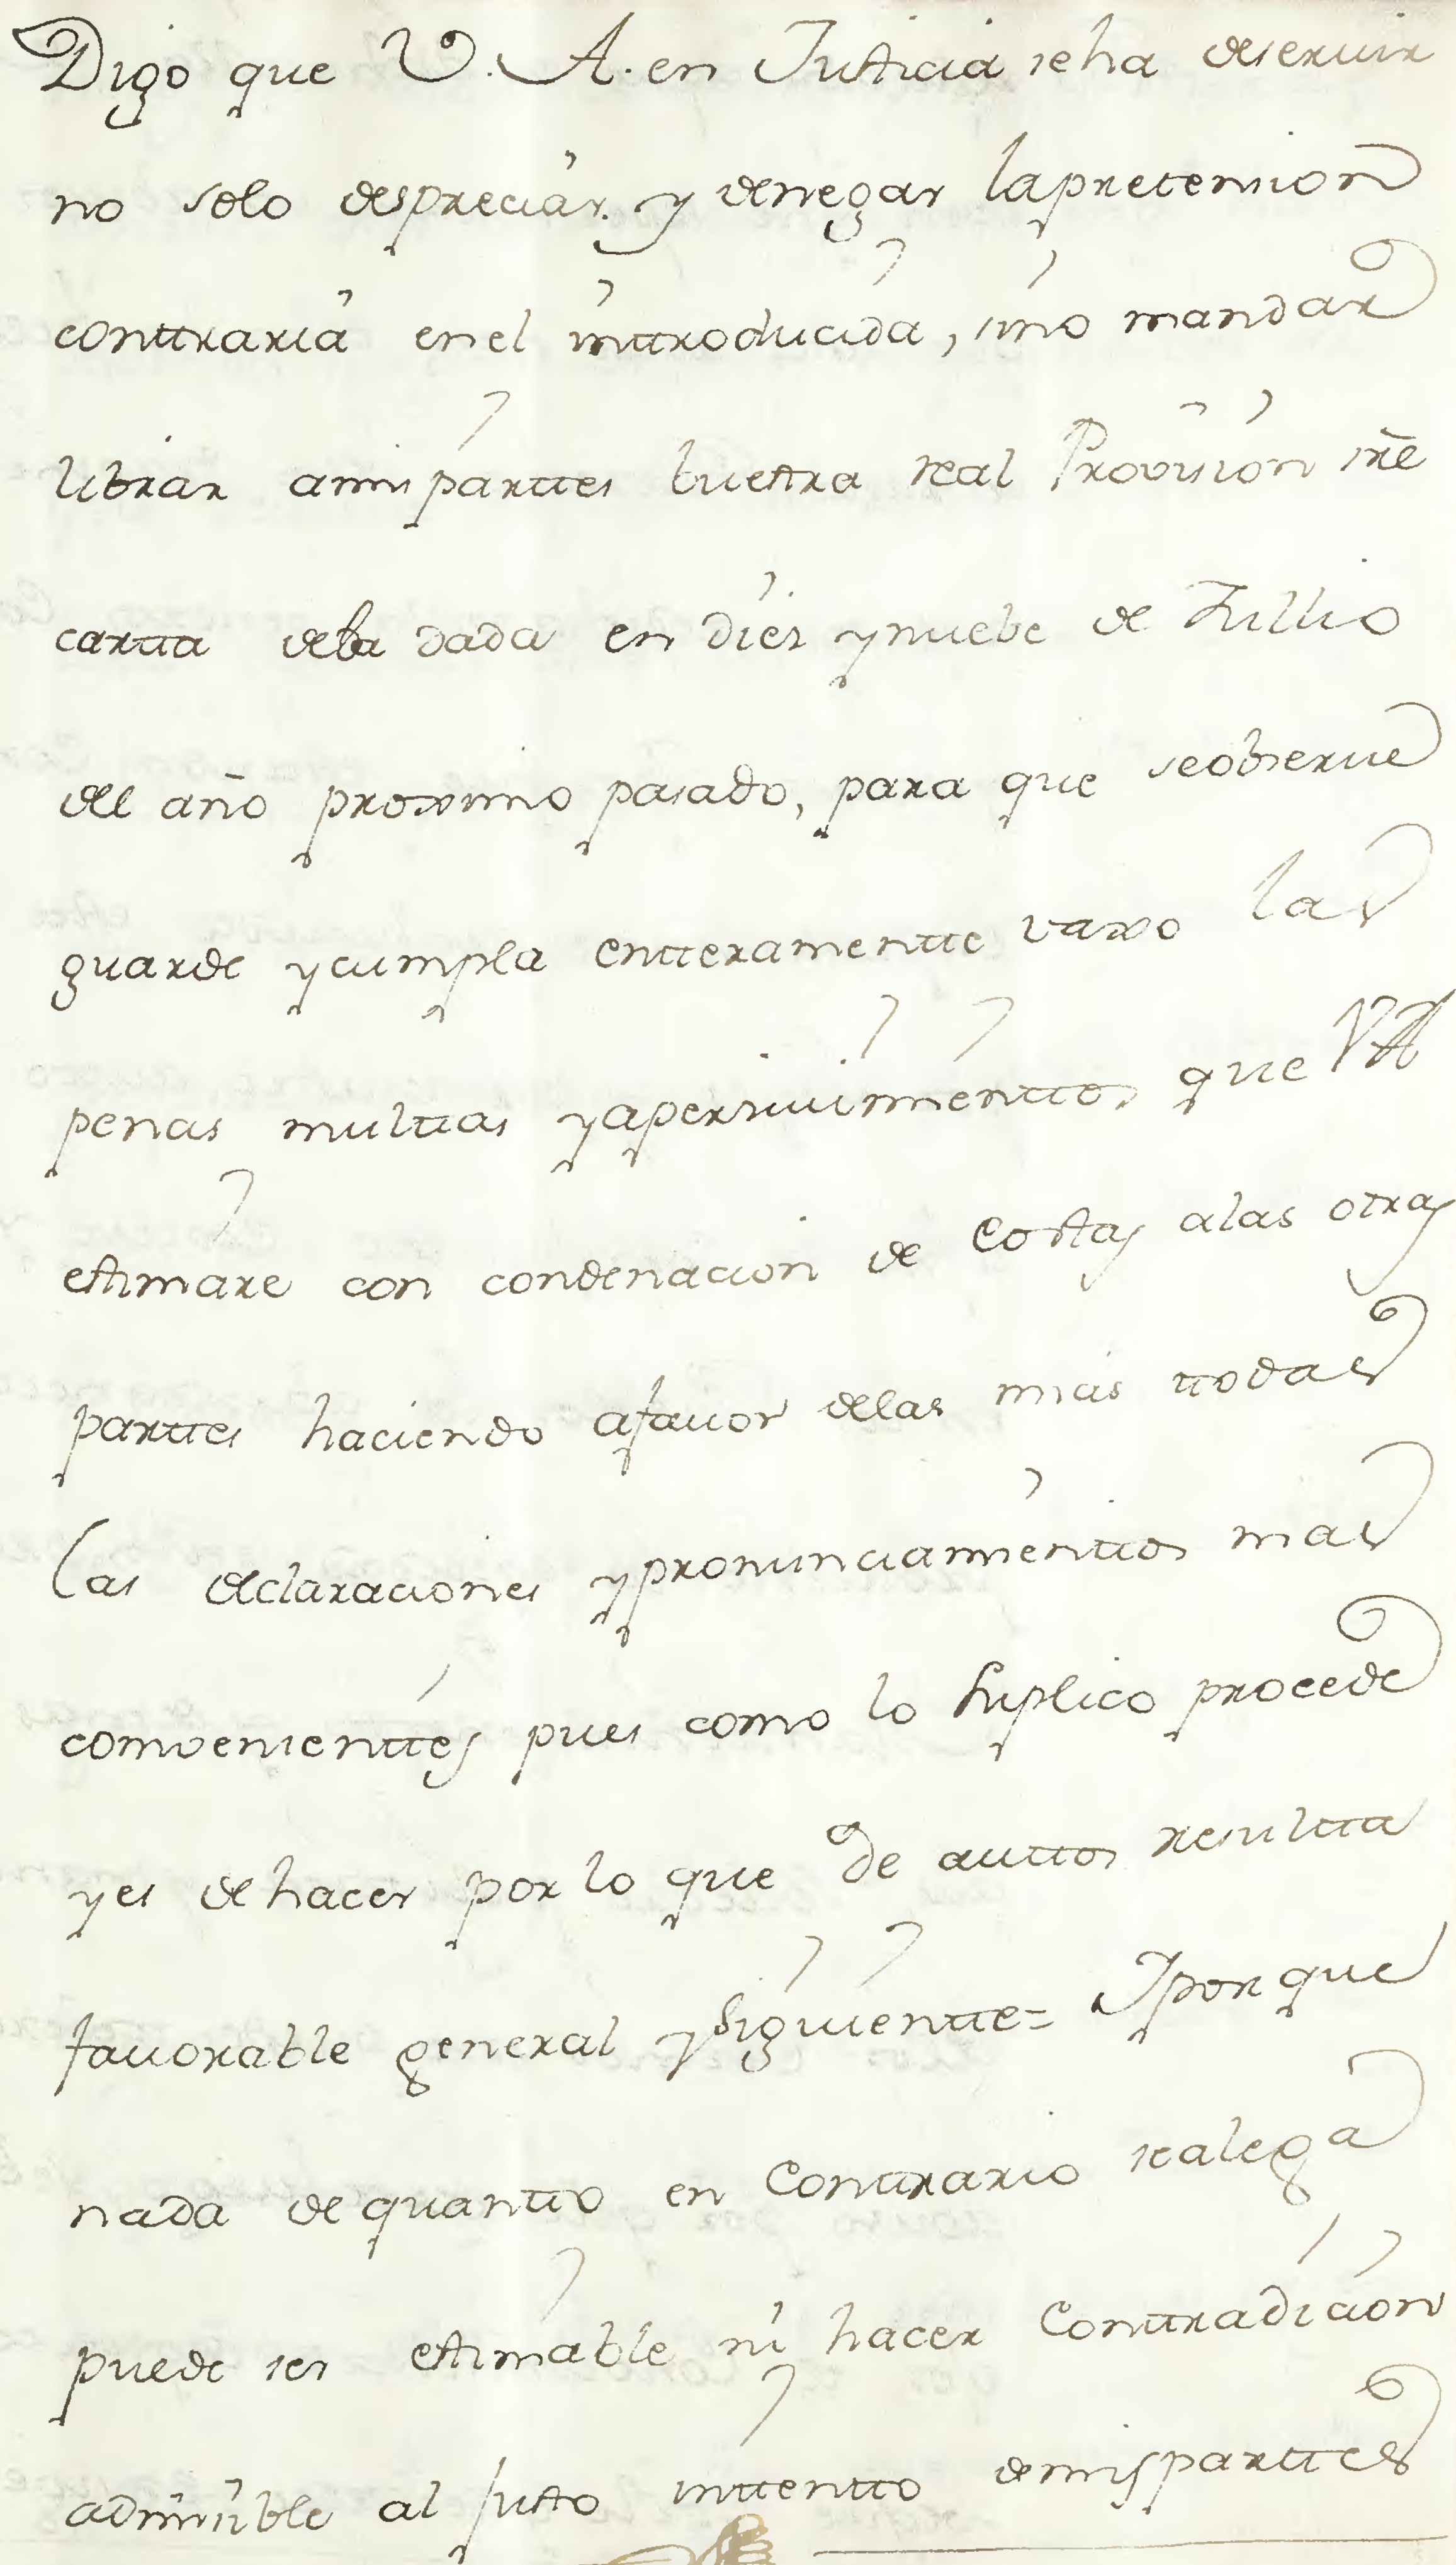 Digo que V. A. en Justicia se ha deseruir
no solo despreciar. y denegar lapretension
contraria en el inttroducida, sino mandar
librar amis parttes buestra real Provision sre
cartta dela dada en diez y nuebe de Jullio
del año proximo pasado, para que seobserue
guarde y cumpla entteramentte vaxo las
penas multtas y apersiuimienttos que VA
estimare con condenacion de Costas alas otras
parttes haciendo afauor delas mias ttodas
Las declaraciones y pronunciamienttos mas
combenienttes pues como lo suplico procede
y es de hacer por lo que de auttos resultta
fauorable general y Siguientte= Y por que
nada de quantto en Conttrario sealega
puede ser estimable ni hacer Conttradicion
admisible al justo inttentto demis parttes